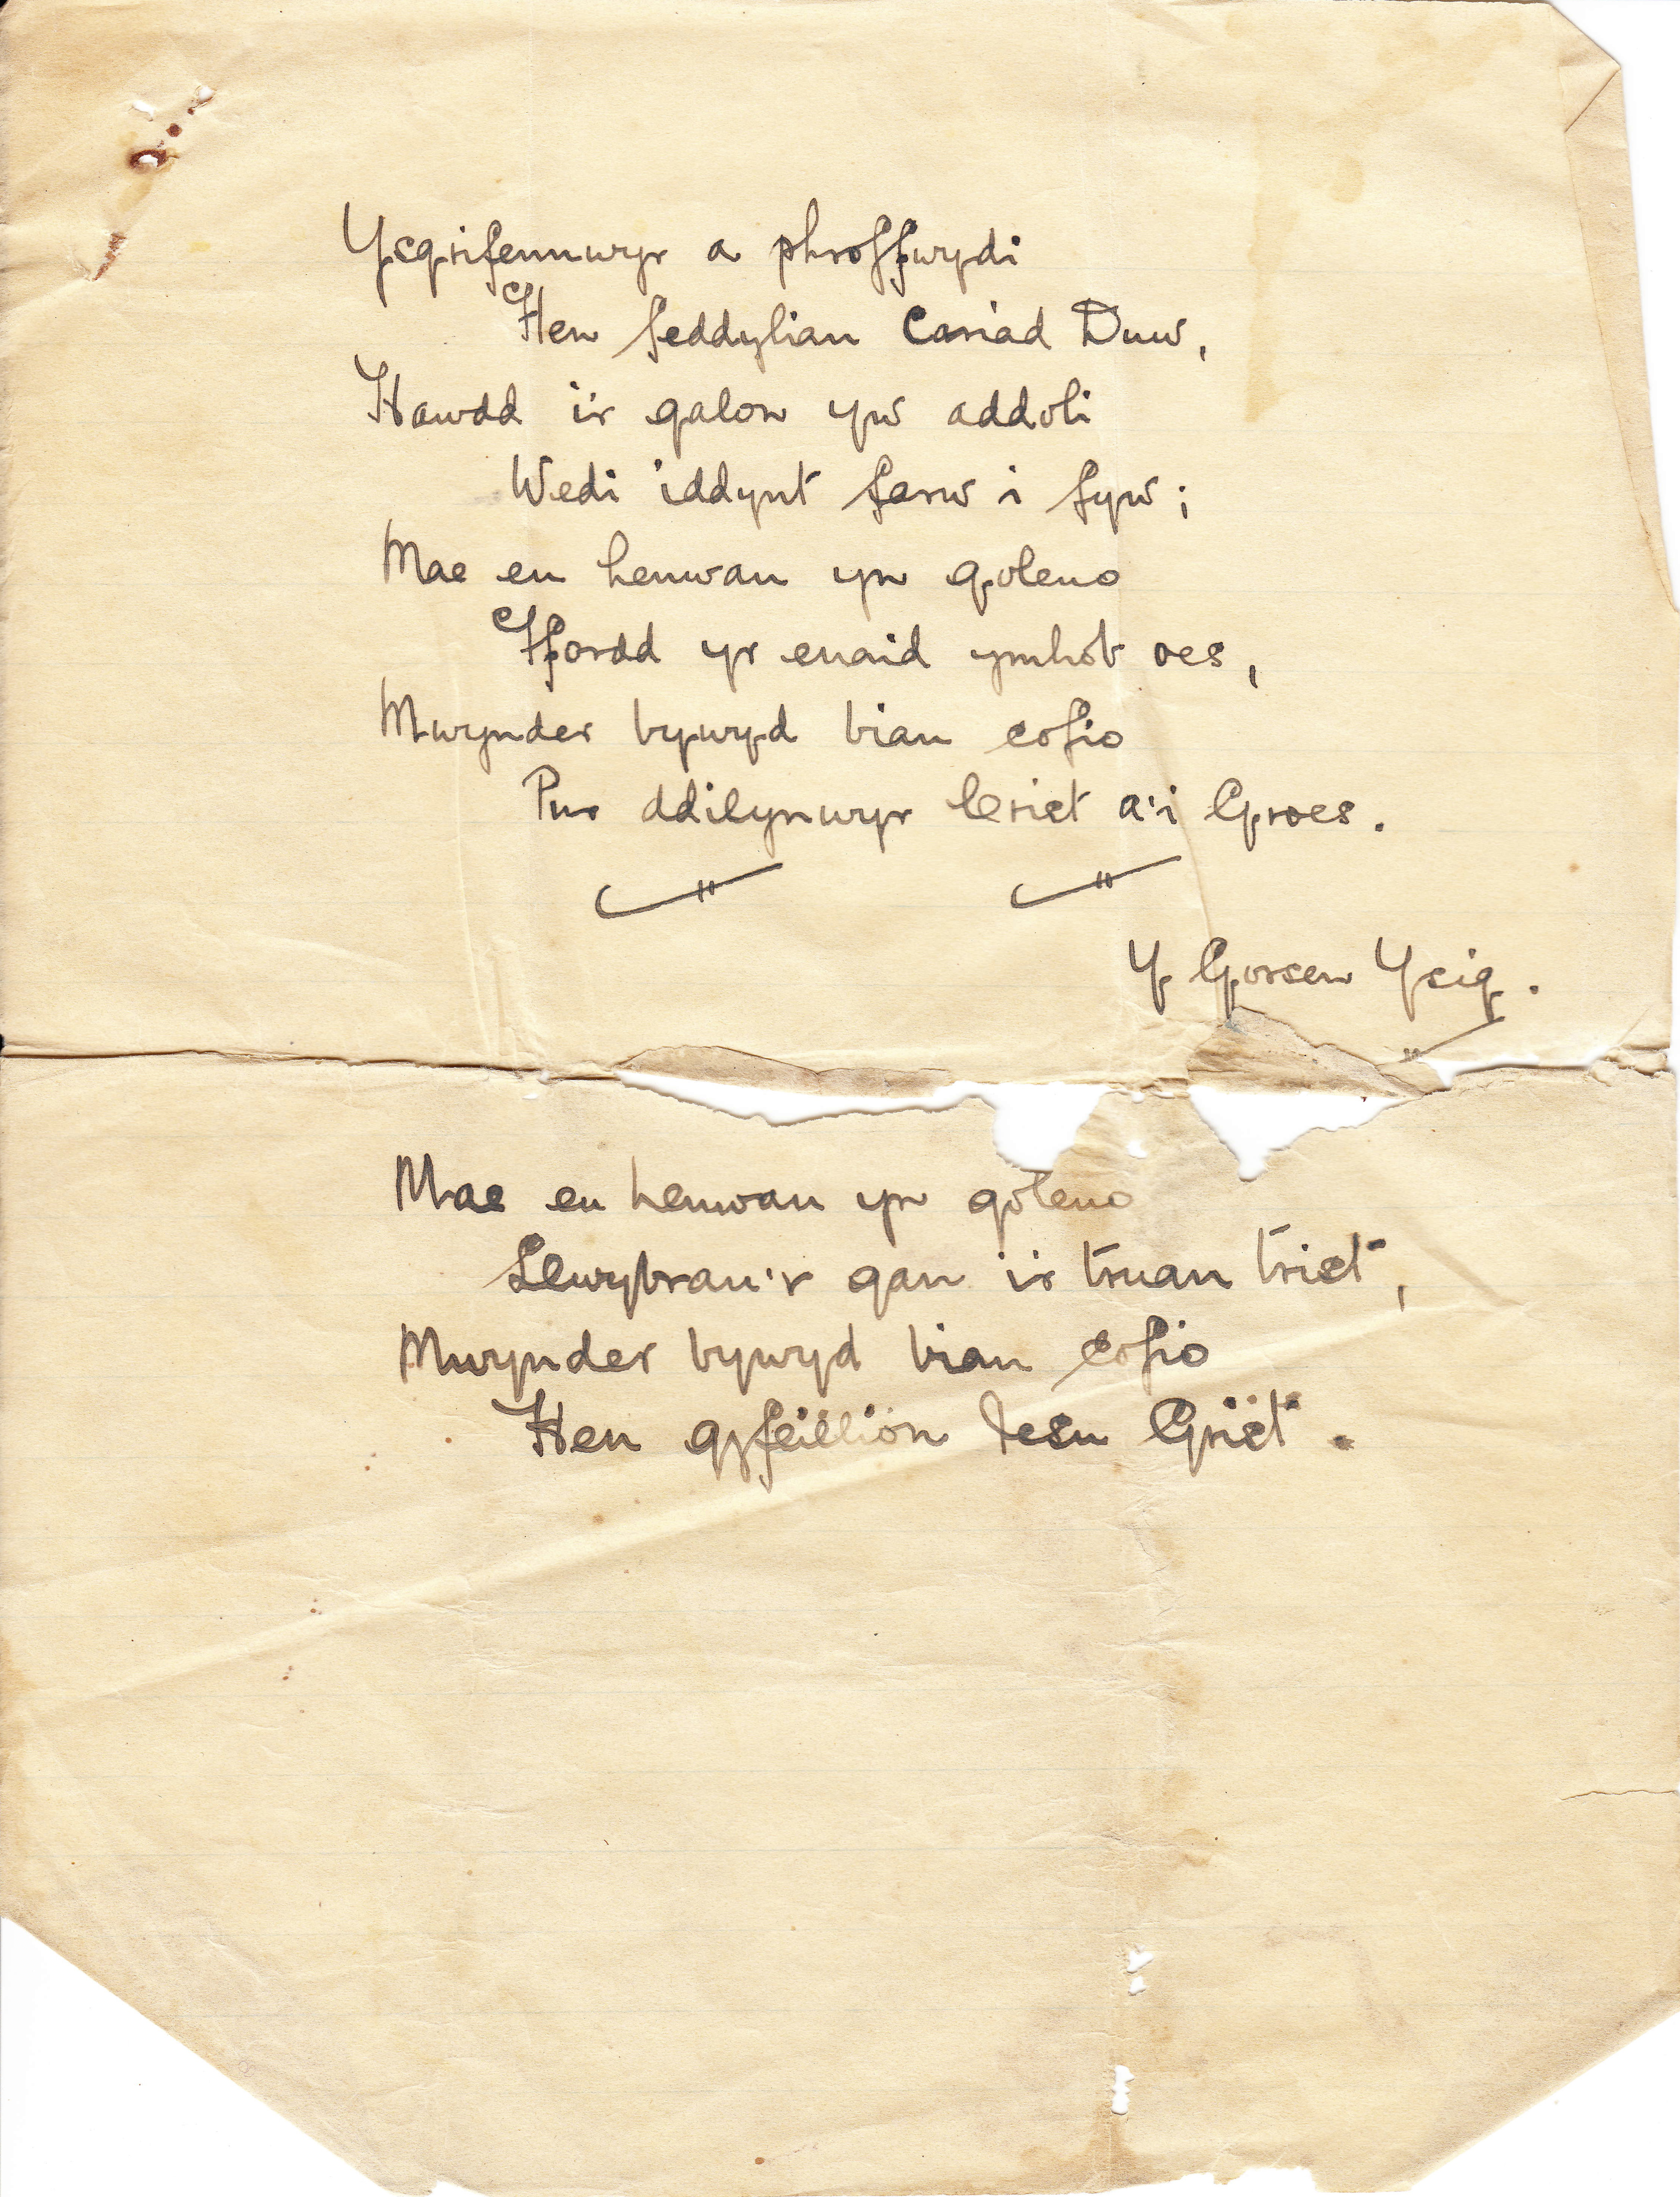 Ysgrifennwyr a phroffwydi
Hen feddyliau Cariad Duw,
Hawdd i'r galon yw addoli
Wedi iddynt farw i fyw;
Mae eu henwau yn goleuo
Ffordd yr enaid ymhob oes,
Mwynder bywyd biau cofio
Pur ddilynwyr Crist a'i Groes.
Y Gorsen Ysig.
Mae eu henwau yn goleuo
Llwybrau'r gan i'r truan trist,
Mwynder bywyd biau cofio
Hen gyfeillion Iesu Grist.